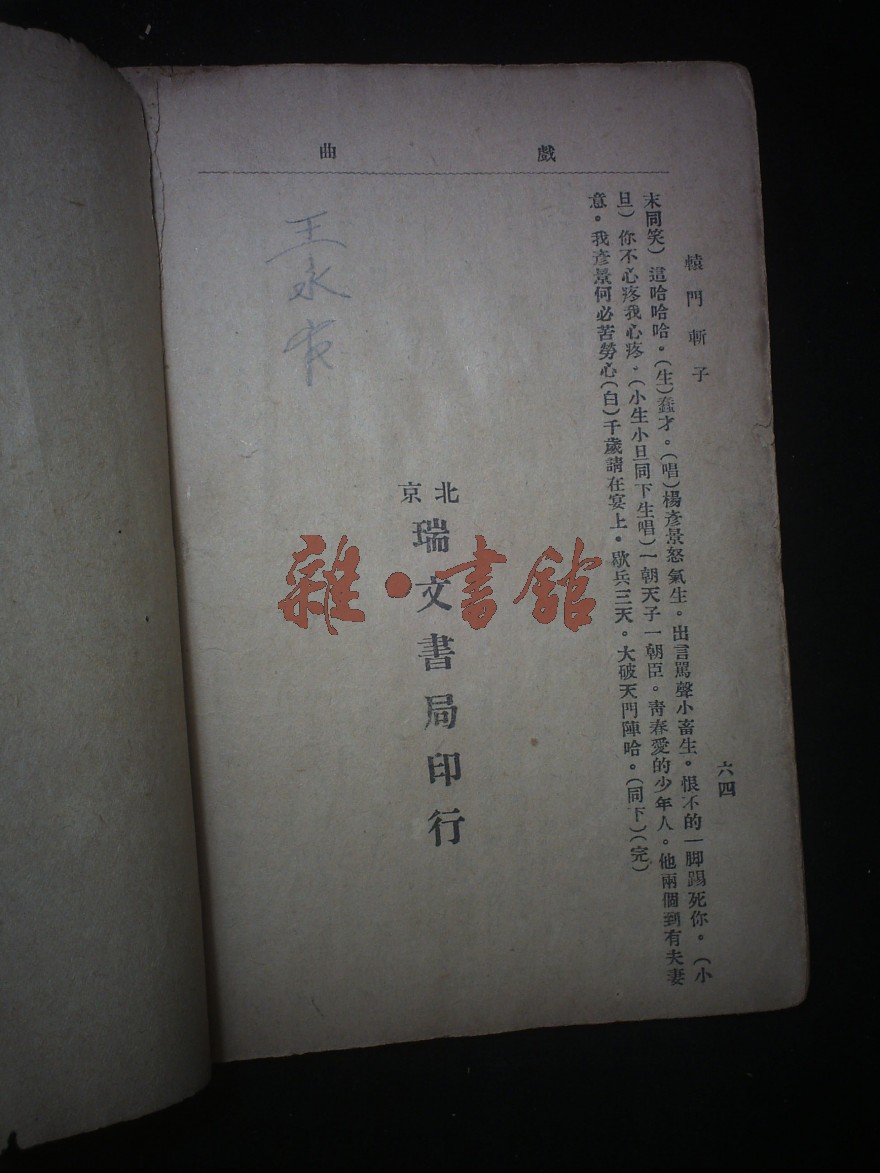 戲曲
轅門斬子
六四
末同笑）這哈哈哈。（生）蠢才。（唱）楊彥景怒氣生。出言駡聲小畜生。恨不的一脚踢死你。（小
旦）你不心疼我心疼。（小生小旦同下生唱）一朝天子一朝臣。靑春愛的少年人。他兩個到有夫妻
意。我彥景何必苦勞心（白）千歲請在宴上。歇兵三天。大破天門陣哈。（同下）（完）
北京
瑞文書局印行
王永
雜·書館